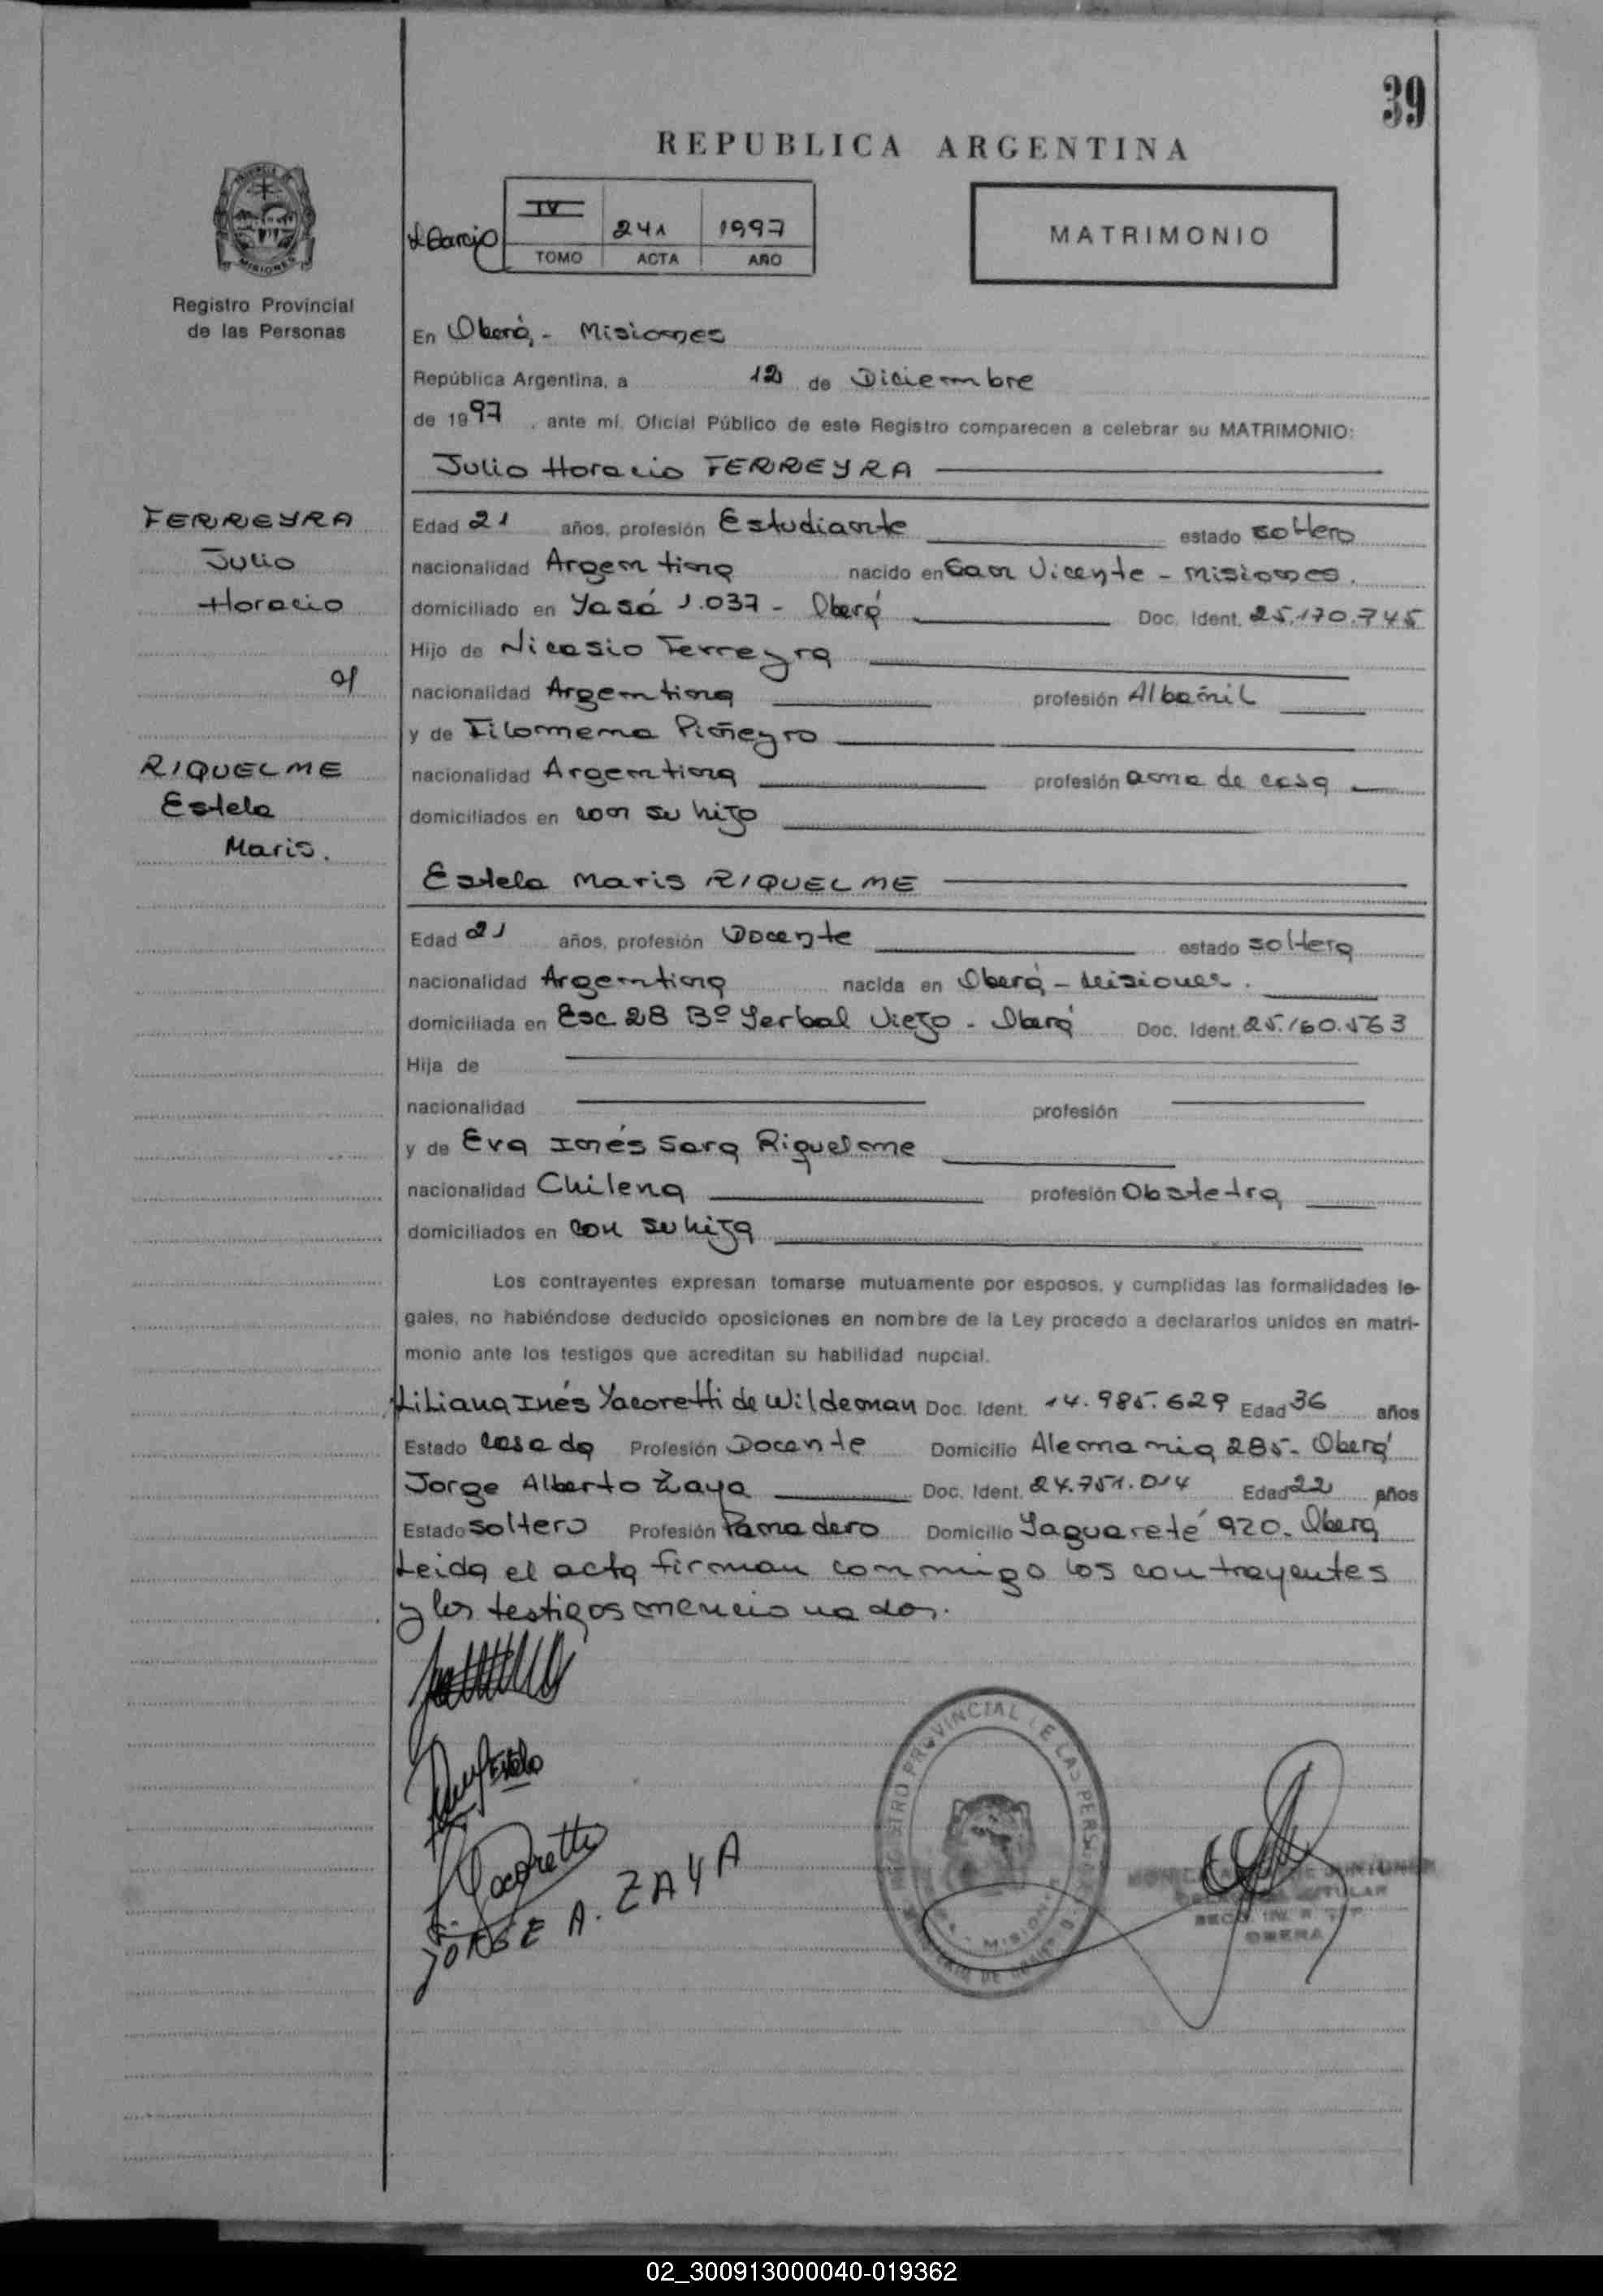 39
REPUBLICA ARGENTINA
IV 241 1997
TOMO ACTA AÑO
MATRIMONIO
MISIONES
Registro Provincial
de las Personas
En Oberá, - Misiones
República Argentina, a 12 de Diciembre
de 1997, ante mí, Oficial Público de este Registro comparecen a celebrar su MATRIMONIO:
Julio Horacio FERREYRA
FERREYRA
Julio
Horacio
RIQUELME
Estela
Maris.
Edad 21 años, profesión Estudiante estado soltero
nacionalidad Argentina nacido en San Vicente - Misiones.
domiciliado en Yasá 1.037 - Oberá Doc. Ident. 25.170.745
Hijo de Nicasio Ferreyra
nacionalidad Argentina profesión Albañil
y de Filomena Piñeyro
nacionalidad Argentina profesión ama de casa
domiciliados en con su hijo
Estela Maris RIQUELME
Edad 21 años, profesión Docente estado soltera
nacionalidad Argentina nacida en Oberá - Misiones.
domiciliada en Esc 28 Bº Yerbal Viejo - Oberá Doc. Ident. 25.160.563
Hija de
nacionalidad profesión
y de Eva Inés Sara Riquelme
nacionalidad Chilena profesión Obstetra
domiciliados en con su hija
Los contrayentes expresan tomarse mutuamente por esposos, y cumplidas las formalidades le-
gales, no habiéndose deducido oposiciones en nombre de la Ley procedo a declararlos unidos en matri-
monio ante los testigos que acreditan su habilidad nupcial.
Liliana Inés Yacoretti de Wildeman Doc. Ident. 14.985.629 Edad 36 años
Estado casada Profesión Docente Domicilio Alemania 285 - Oberá
Jorge Alberto Zaya Doc. Ident. 24.751.014 Edad 22 años
Estado soltero Profesión Panadero Domicilio Yaguareté 920 - Oberá
Leida el acta firman conmigo los contrayentes
y los testigos mencionados.
Estela
Yacoretti
JORGE A. ZAYA
REGISTRO PROVINCIAL DE LAS PERSONAS
MISIONES
TITULAR
OBERA
02_300913000040-019362